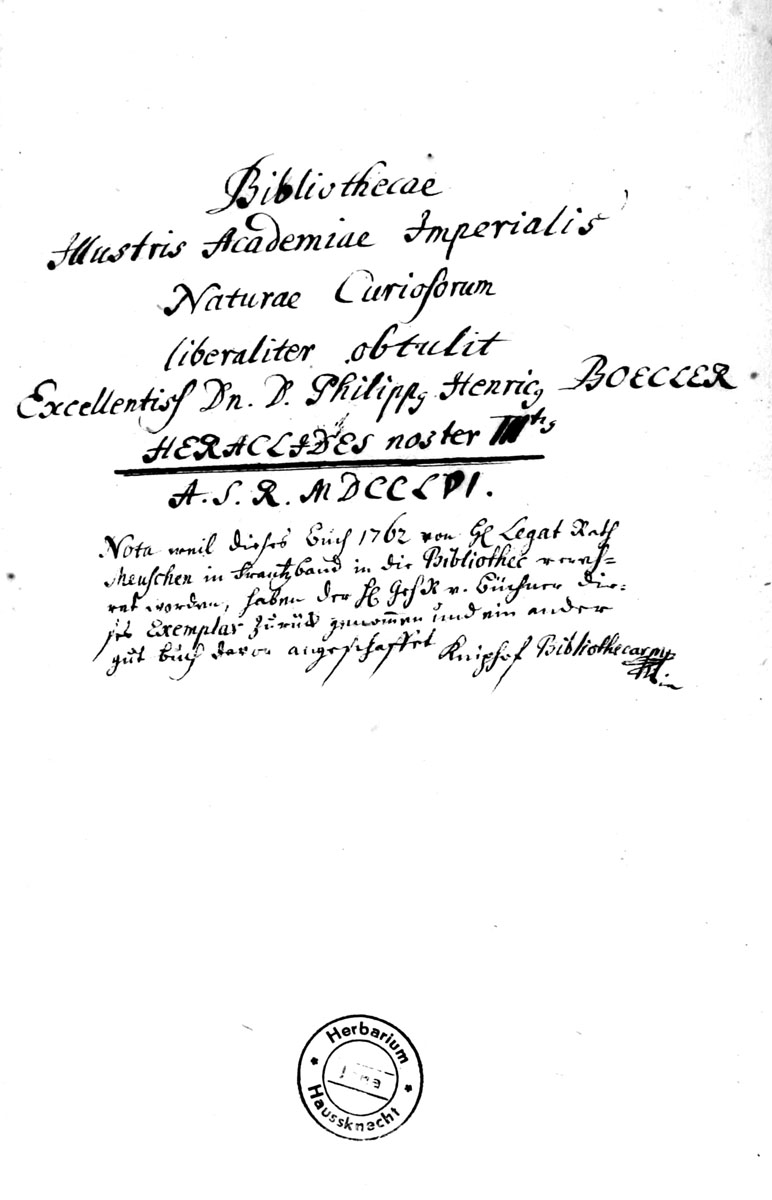 Bibliothecae
Illustris Academiae Imperialis
Naturae Curiosorum
liberaliter obtulit
Excellentiss Dn. D. Philippg Henricg BOECLER
HERACLIDES noster IIItg
A. S. R. MDCCLVI.
Nota weil dieses Buch 1762 von H Legat Rath
Meuschen in Frantzband in die Bibliothec vereh=
ret worden, haben der H GehR v. Büchner die=
ses Exemplar zurück genommen und ein ander
gut buch davor angeschaffet Kniphof Bibliothecar mp
Herbarium
Jena
Haussknecht